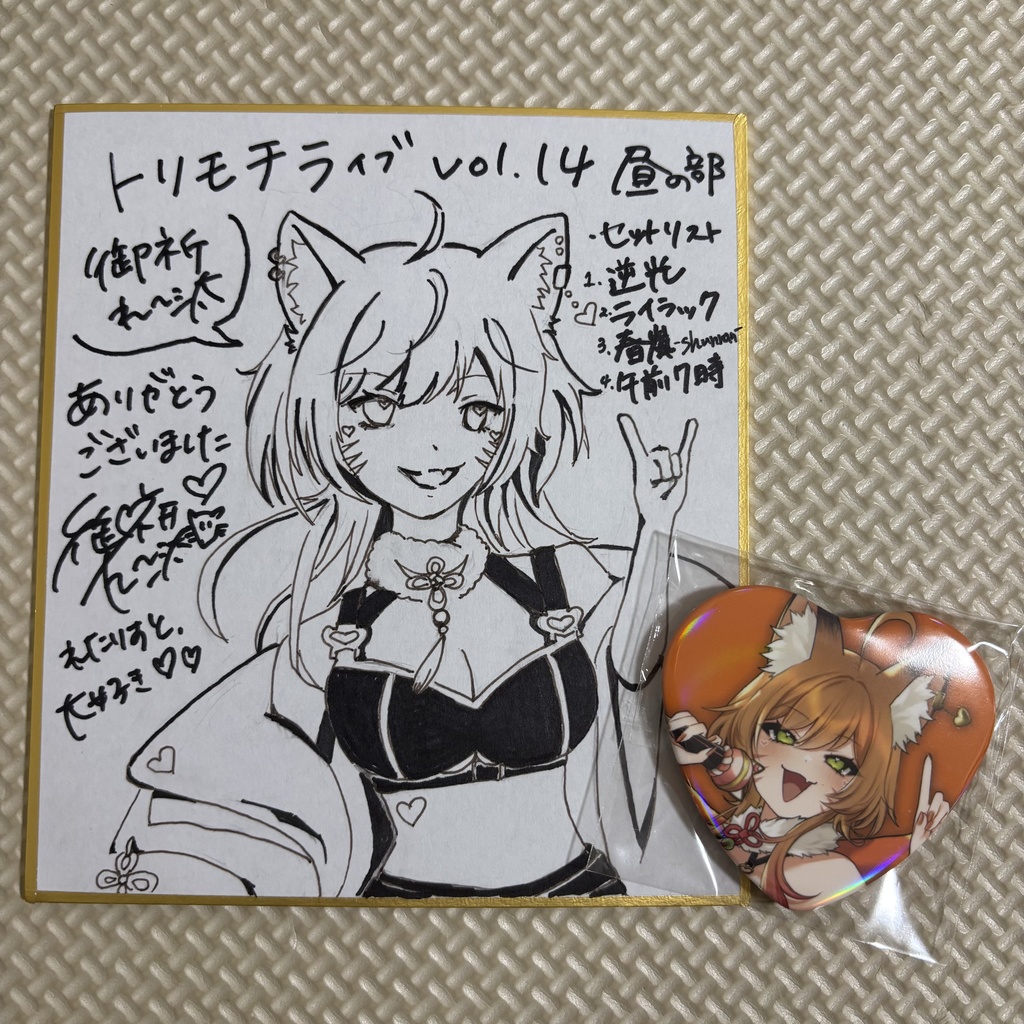 トリモチライブ vol.14 昼の部
御祈
れ〜汰
・セットリスト
1. 逆光
2. ライラック
3. 春嵐-shunran-
4. 午前7時
ありがとう
ございました
御祈
れ〜汰
だいすき